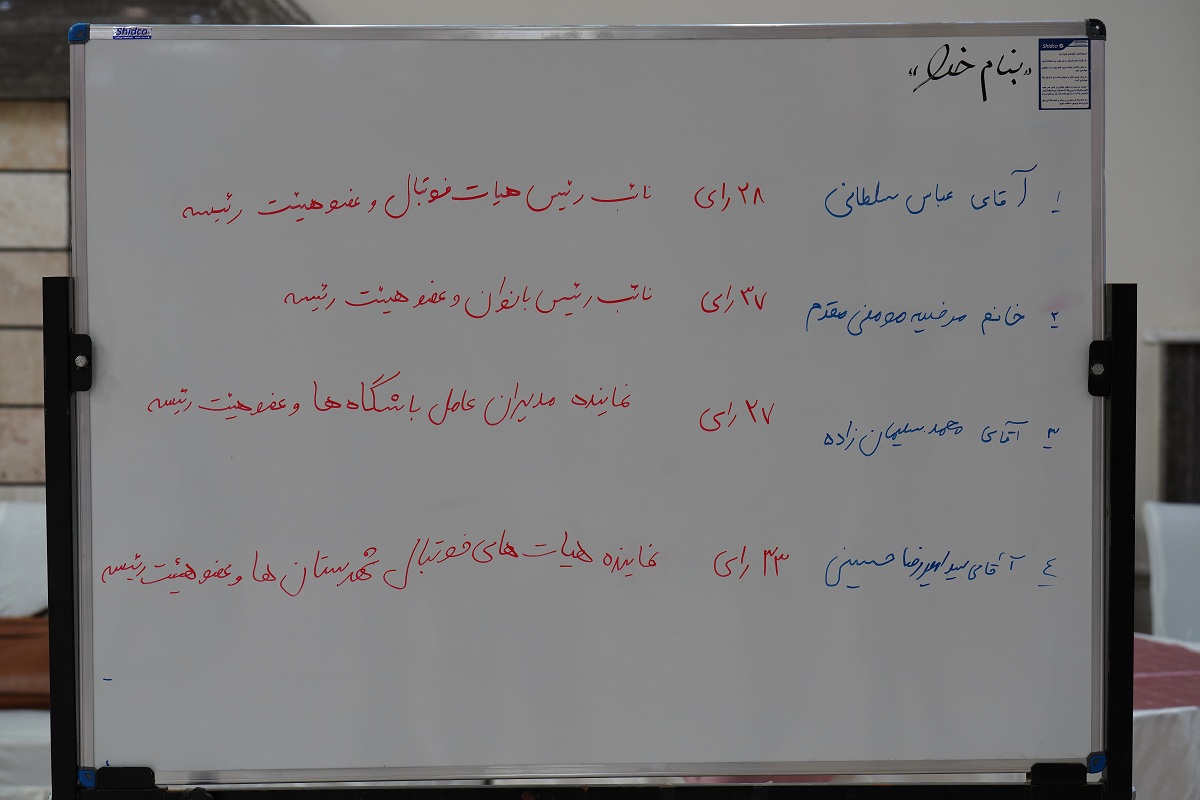 Shidco
«بنام خدا»
Shidco
۱ـ آقای عباس سلطانی ۲۸ رای نائب رئیس هیات فوتبال و عضو هیئت رئیسه
۲ـ خانم مرضیه مومنی مقدم ۳۷ رای نائب رئیس بانوان و عضو هیئت رئیسه
۳ـ آقای محمد سلیمان زاده ۲۷ رای نماینده مدیران عامل باشگاه ها و عضو هیئت رئیسه
۴ـ آقای سید امیررضا حسینی ۳۳ رای نماینده هیات های فوتبال شهرستان ها و عضو هیئت رئیسه